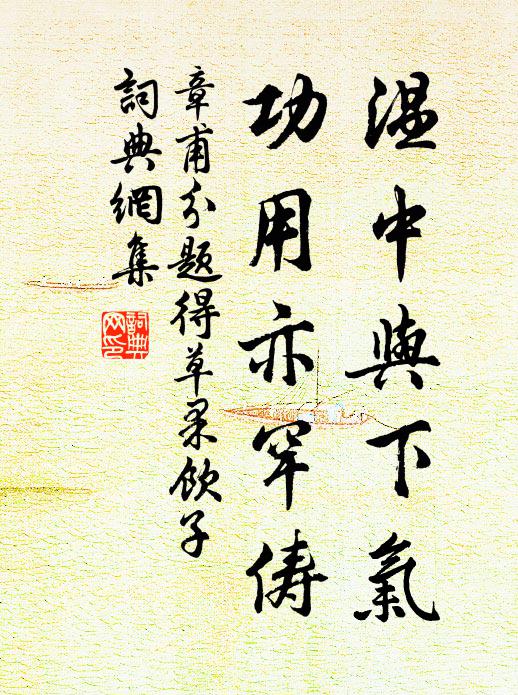 温中與下氣
功用亦罕儔
章甫分題得草果飲子
詞典網集
詞典
網印